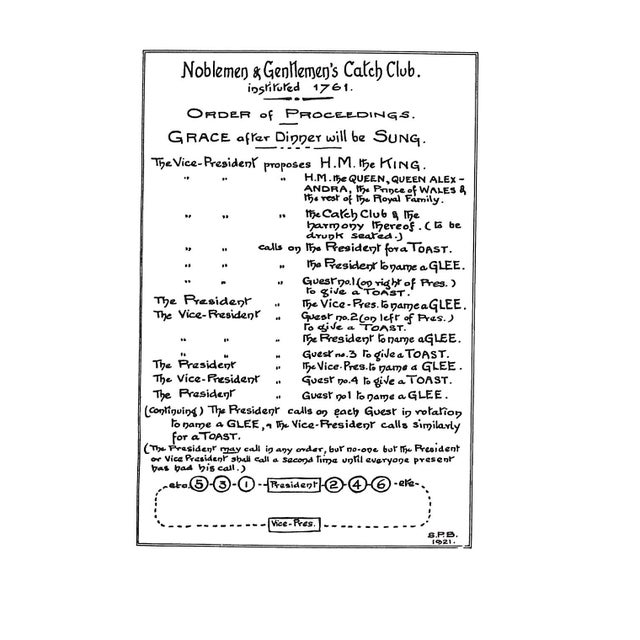 Noblemen & Gentlemen's Catch Club.
instituted 1761.
ORDER of PROCEEDINGS.
GRACE after Dinner will be SUNG.
The Vice-President proposes H.M. the KING.
" " " H.M. the QUEEN, QUEEN ALEX-
ANDRA, the Prince of WALES &
the rest of the Royal Family.
" " " the Catch Club & the
harmony thereof. (to be
drunk seated.)
" " calls on the President for a TOAST.
" " " the President to name a GLEE.
" " " Guest no.1 (on right of Pres.)
to give a TOAST.
The President " the Vice-Pres. to name a GLEE.
The Vice-President " Guest no.2 (on left of Pres.)
to give a TOAST.
" " " the President to name a GLEE.
" " " Guest no.3 to give a TOAST.
The President " the Vice-Pres. to name a GLEE.
The Vice-President " Guest no.4 to give a TOAST.
The President " Guest no1 to name a GLEE.
(continuing) The President calls on each Guest in rotation
to name a GLEE, & the Vice-President calls similarly
for a TOAST.
(The President may call in any order, but no-one but the President
or Vice President shall call a second time until everyone present
has had his call.)
etc. 5 3 1 President 2 4 6 etc
Vice-Pres.
S.P.B.
1921.